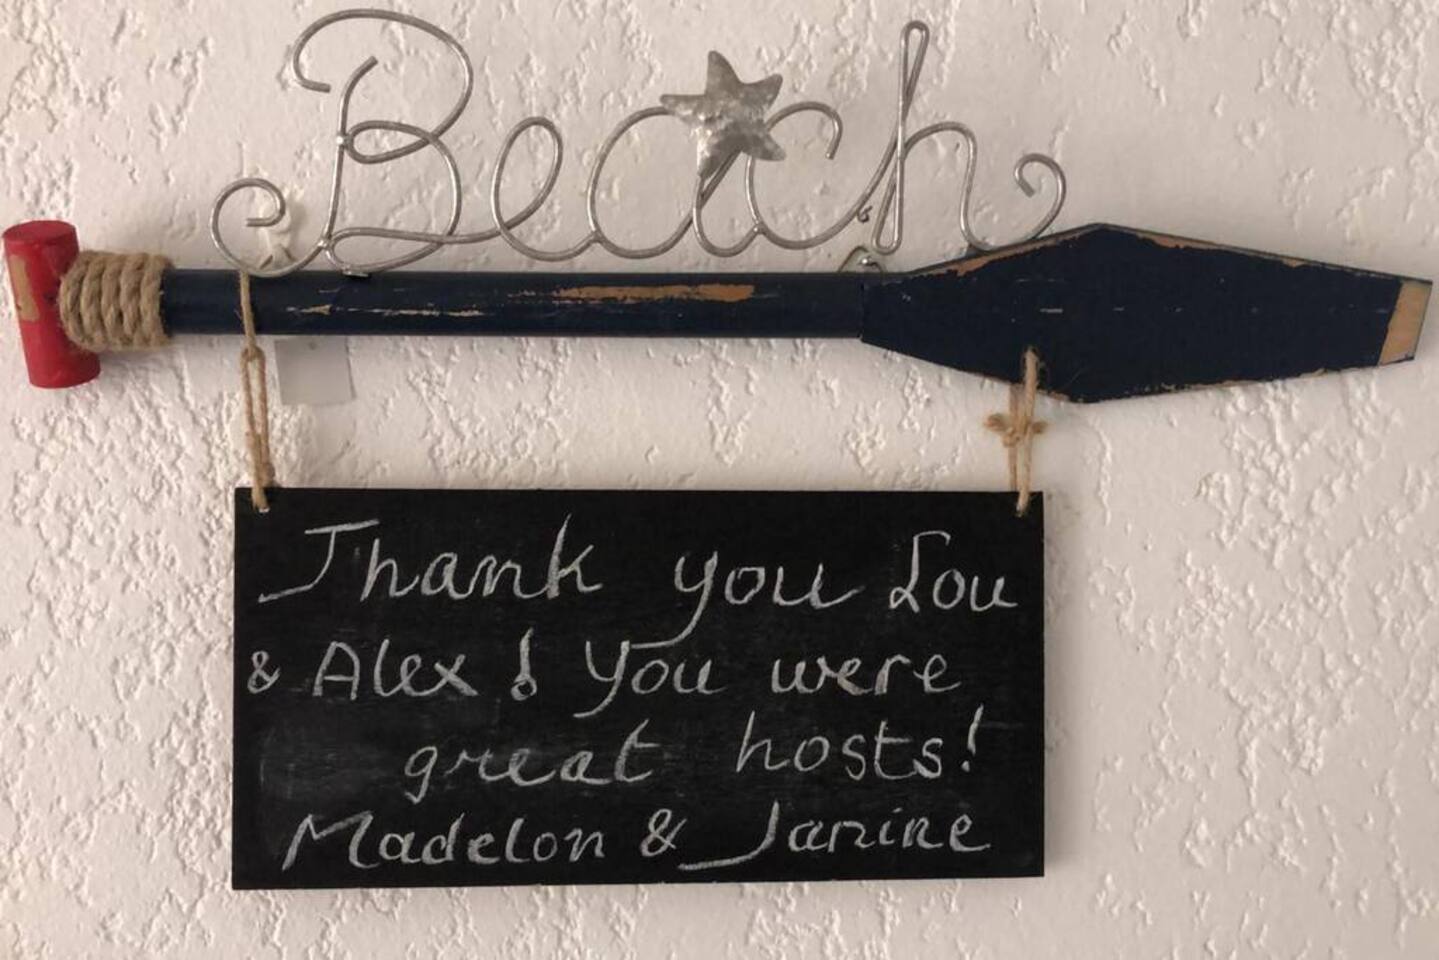 Beach
Thank you Lou
& Alex! You were
great hosts!
Madelon & Janine